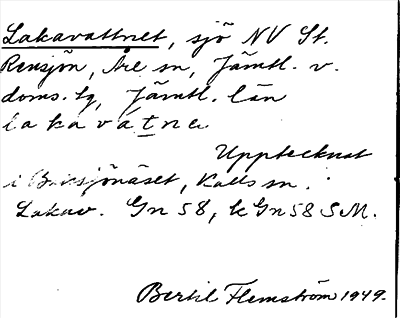 Lakavattnet, sjö NV St.
Rensjön, Åre sn, Jämtl. v.
doms. tg, Jämtl. län
lakavátne
Upptecknat
i sjönäset, Kalls sn.
Lakav. Gn 58, k Gn 58 S M.
Bertil Flemström 1949.